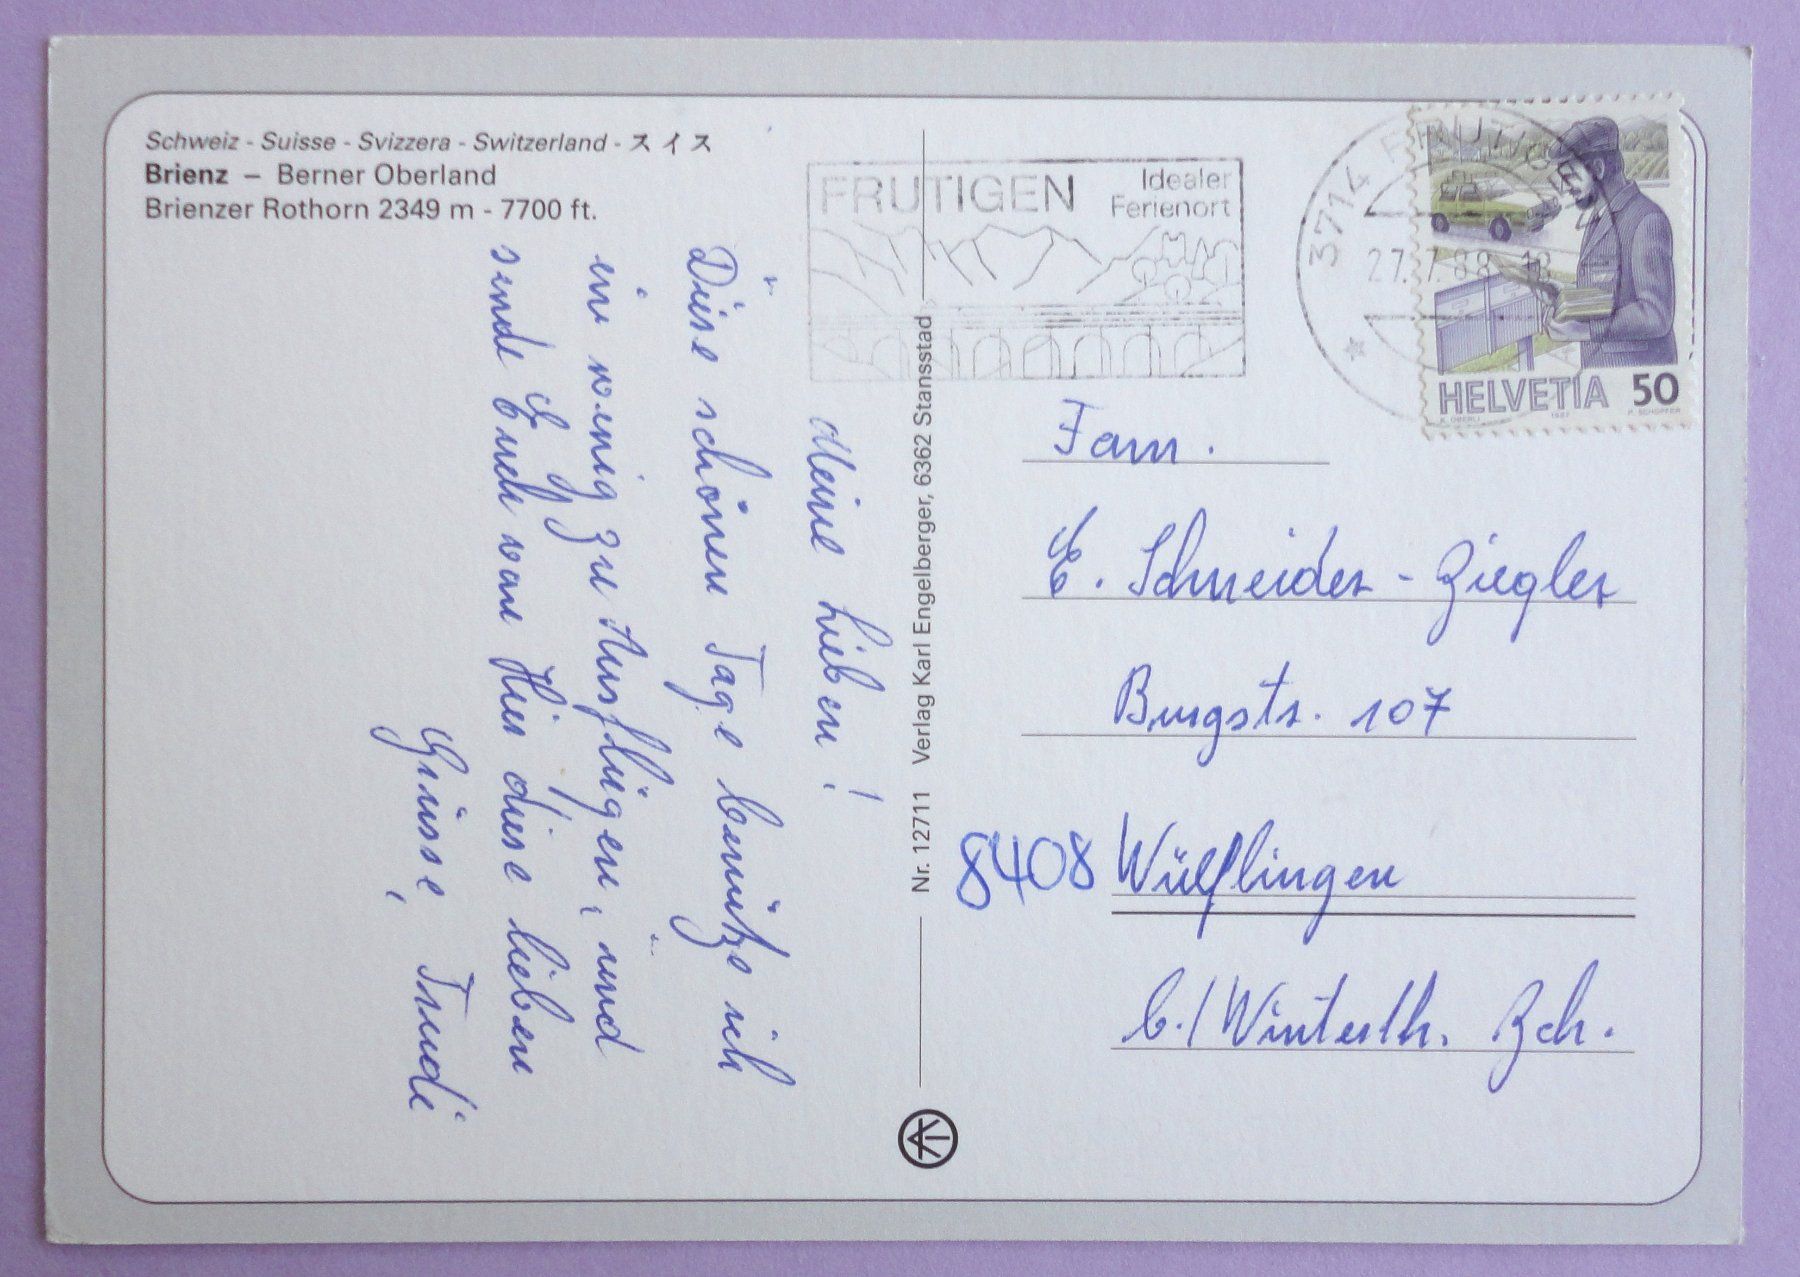 Schweiz - Suisse - Svizzera - Switzerland - スイス
Brienz – Berner Oberland
Brienzer Rothorn 2349 m - 7700 ft.
Meine Lieben!
Diese schönen Tage benütze ich
ein wenig zu Ausflügen, und
sende Euch von Hier diese lieben
Grüsse, Trudi
Nr. 12711 Verlag Karl Engelberger, 6362 Stansstad
FRUTIGEN
Idealer
Ferienort
3714 FRUTIGEN
27.7.88 18
HELVETIA 50
K. OBERLI 1987 P. SCHOPFER
Fam.
E. Schneider - Ziegler
Burgstr. 107
8408 Wülflingen
b./Winterth. Zch.